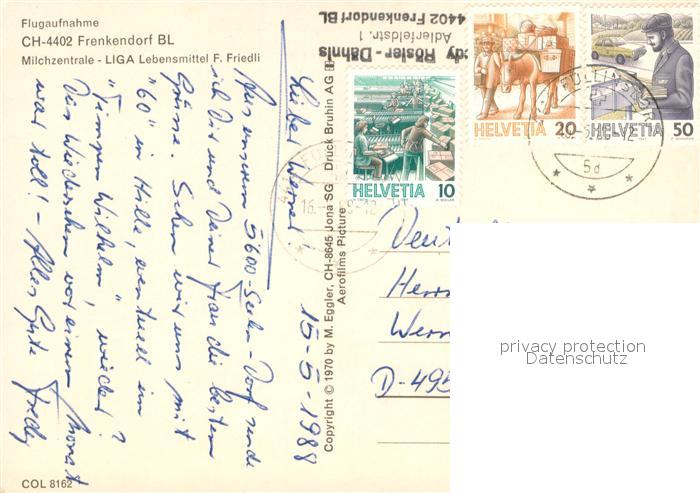 Flugaufnahme
CH-4402 Frenkendorf BL
Milchzentrale - LIGA Lebensmittel F. Friedli
15-5-1988
Lieber Werner!
Aus unserem 5600-Seelen-Dorf sende
ich Dir und Deiner Frau die besten
Grüsse. Sehen wir uns mit
"60" in Hille, eventuell im
"Timpen Wilhelm", wieder?
Das Wiedersehen vor einem Monat
war toll! - Alles Gute Fredy
COL 8162
Copyright © 1970 by M. Eggler, CH-8645 Jona SG Druck Bruhin AG
Aerofilms Picture
edy Rösler-Dähnis
Adlerfeldstr. 1
4402 Frenkendorf BL
HELVETIA 10
HELVETIA 20
HELVETIA 50
5d
Herrn
Wern
D-495
privacy protection
Datenschutz